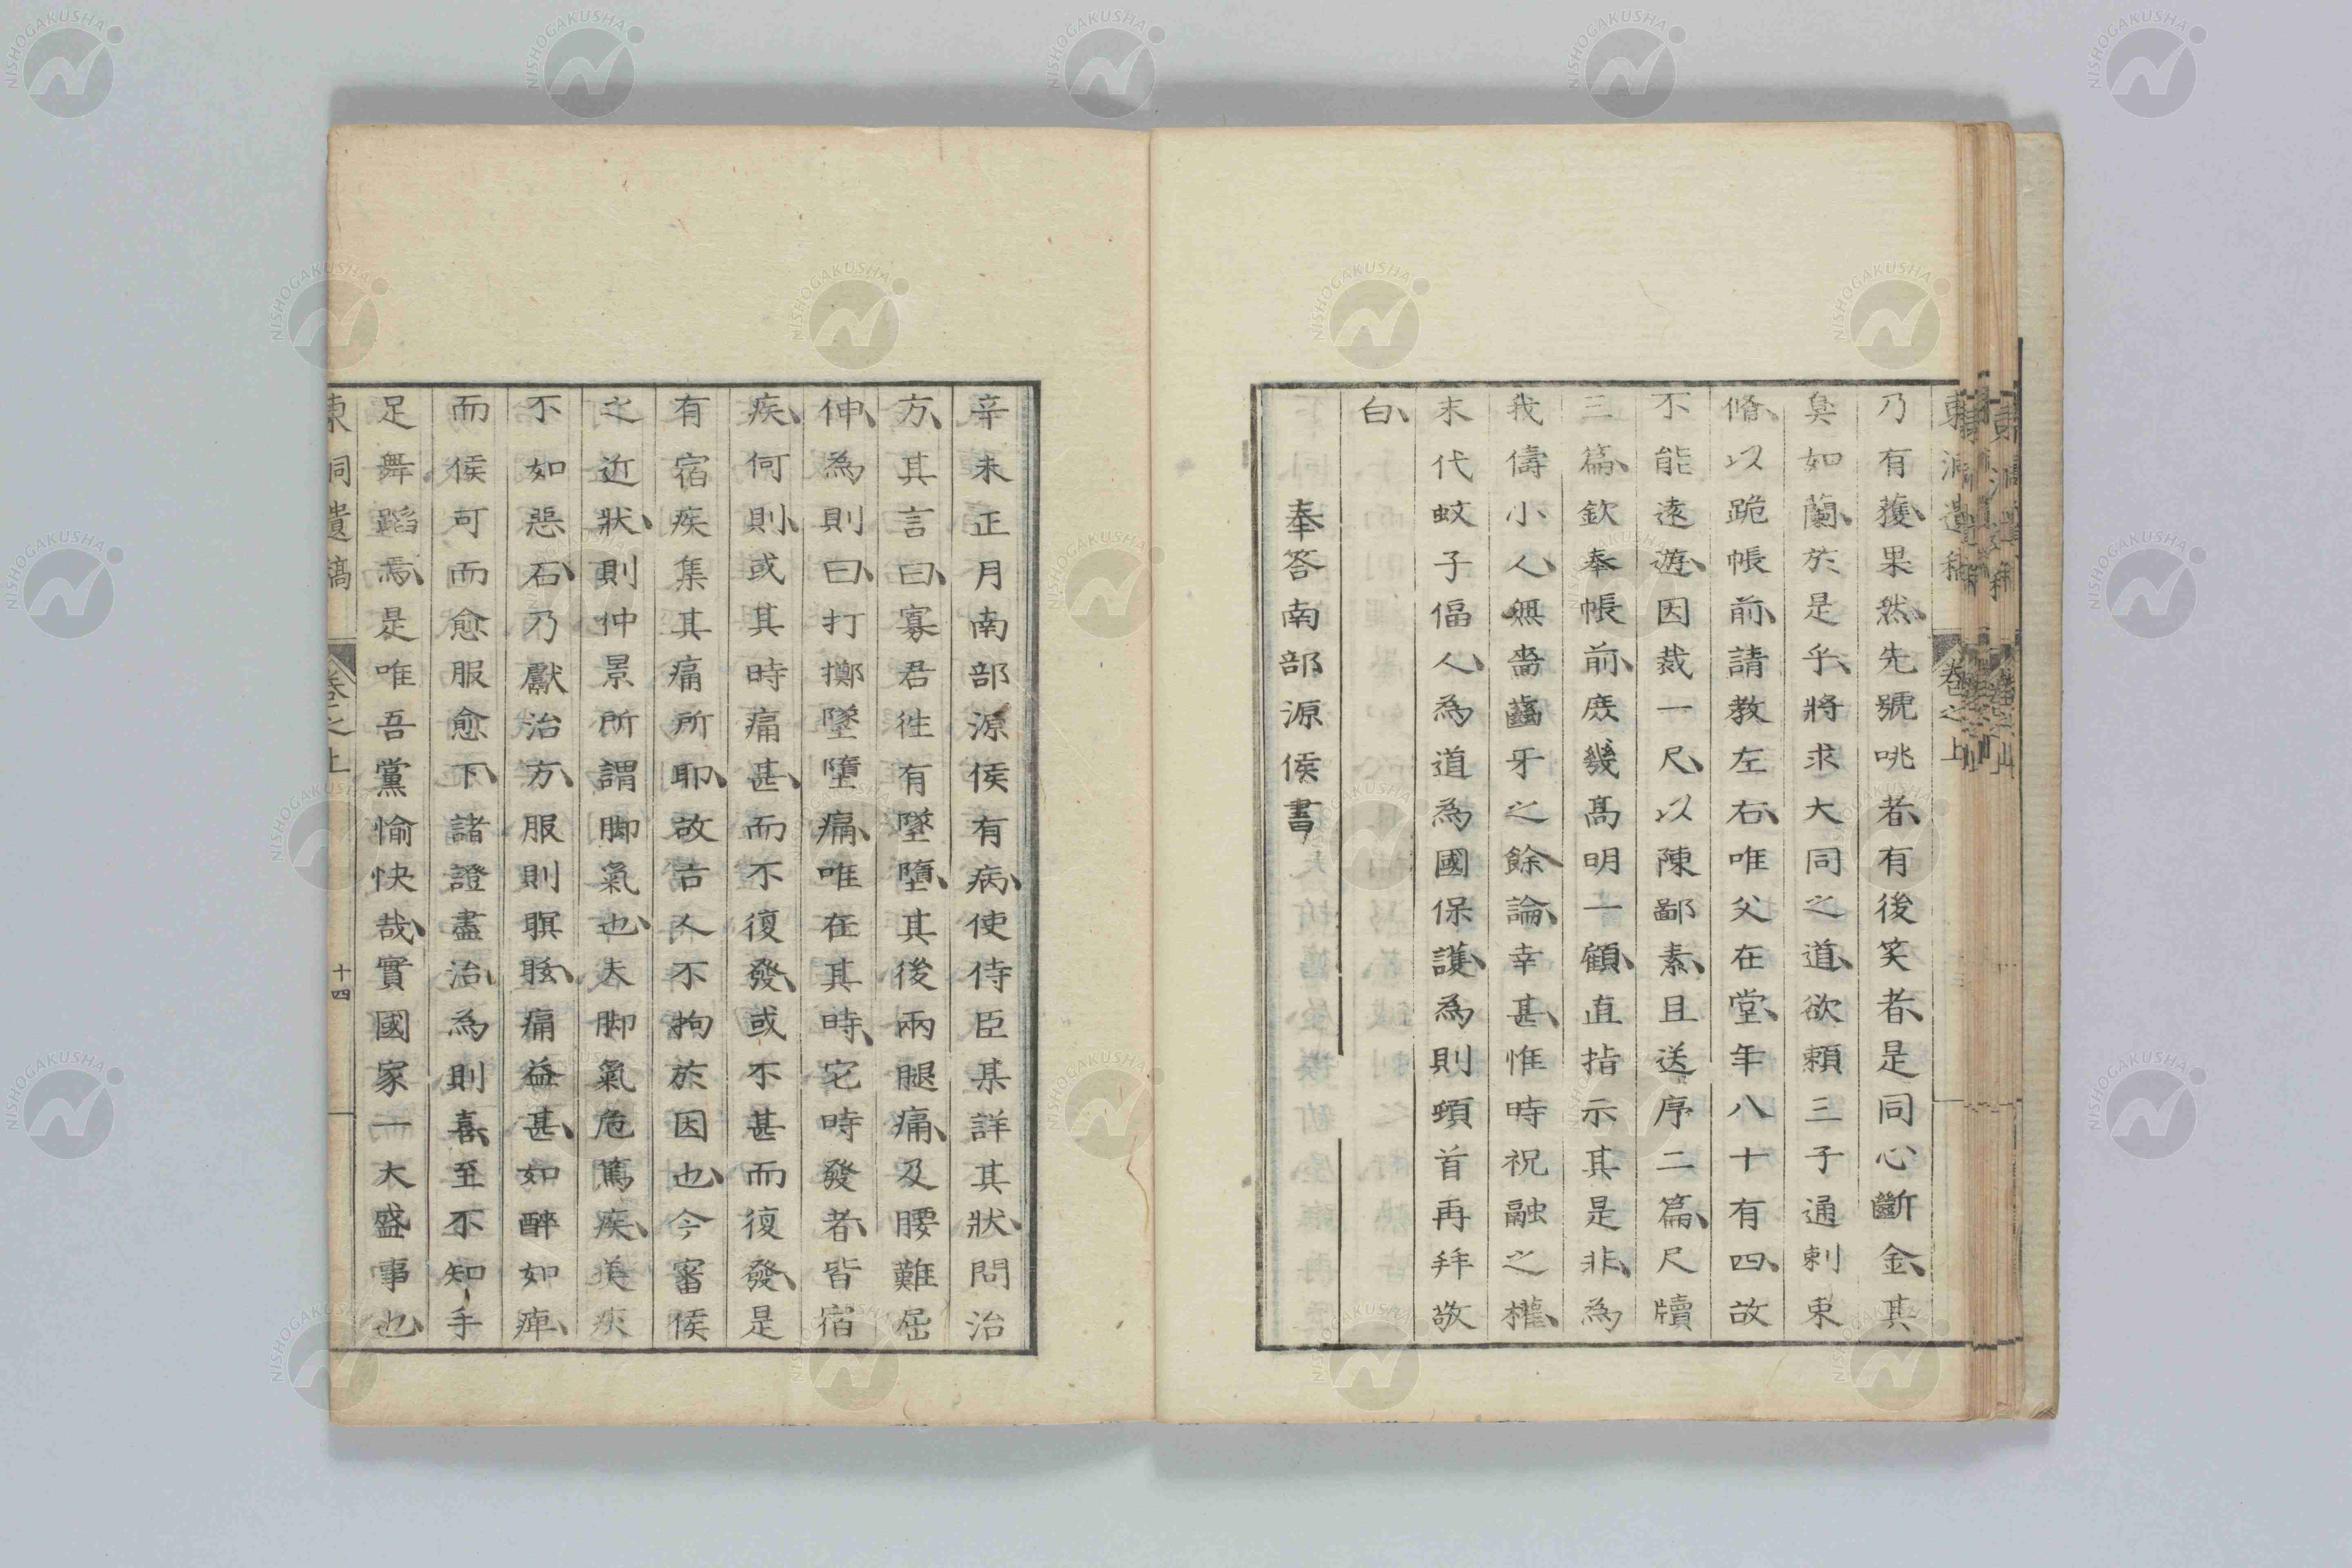 乃有獲、果然先號咷者、有後笑者、是同心斷金、其
臭如蘭、於是乎、將求大同之道、欲頼三子通刺束
脩、以跪帳前、請教左右、唯父在堂、年八十有四、故
不能遠遊、因裁一尺、以陳鄙素、且送序二篇、尺牘
三篇、欽奉帳前、庶幾髙明一顧、直指示其是非、為
我儔小人、無嗇齒牙之餘論、幸甚、惟時祝融之權、
末代蚊子傴人、為道為國保護、為則頓首再拜敬
白、
奉答南部源侯書
辛未正月南部源侯有病、使侍臣某詳其狀、問治
方、其言曰、寡君徃有墜墮、其後兩腿痛、及腰難屈
伸、為則曰、打擲墜墮痛、唯在其時、它時發者、皆宿
疾、何則、或其時痛甚、而不復發、或不甚而復發、是
有宿疾集其痛所耶、故古人不拘於因也、今審侯
之近狀、則仲景所謂脚氣也、夫脚氣危篤疾、美疢
不如惡石、乃獻治方、服則瞑眩、痛益甚、如醉如痺、
而侯可而愈服愈下、諸證盡治、為則喜至不知手
足舞蹈焉、是唯吾黨愉快哉、實國家一大盛事也、
東洞遺稿 卷之上 十四